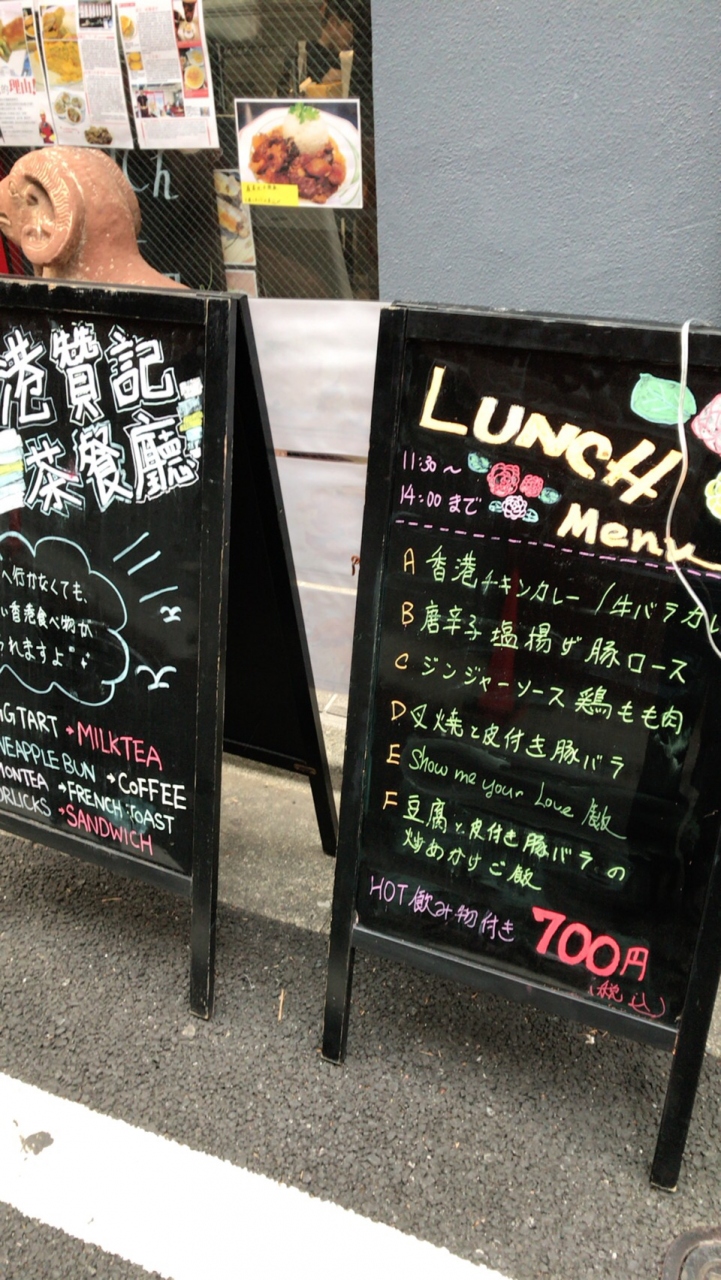 理由!
港贊記
茶餐廳
へ行かなくても、
い香港食べ物が
られますよ
GG TART → MILKTEA
NEAPPLE BUN → COFFEE
MONTEA → FRENCH TOAST
ORLICKS → SANDWICH
LUNCH
11:30～
14:00 まで
Menu
A 香港チキンカレー / 牛バラカレ
B 唐辛子塩揚げ豚ロース
C ジンジャーソース 鶏もも肉
D 叉焼と皮付き豚バラ
E Show me your Love 飯
F 豆腐と皮付き豚バラの
炒めかけご飯
HOT 飲み物付き 700円
(税込)